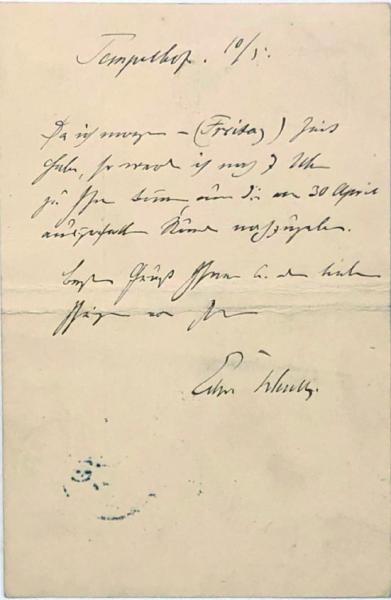 Tempelhof. 10/5.
Da ich morgen – (Freitag) Zeit
habe, so werde ich nach 7 Uhr
zu Ihnen kommen um die am 30 April
ausgefallene Stunde nachzugeben.
Besten Gruß Ihnen u. den lieben
Ihrigen von Ihrem